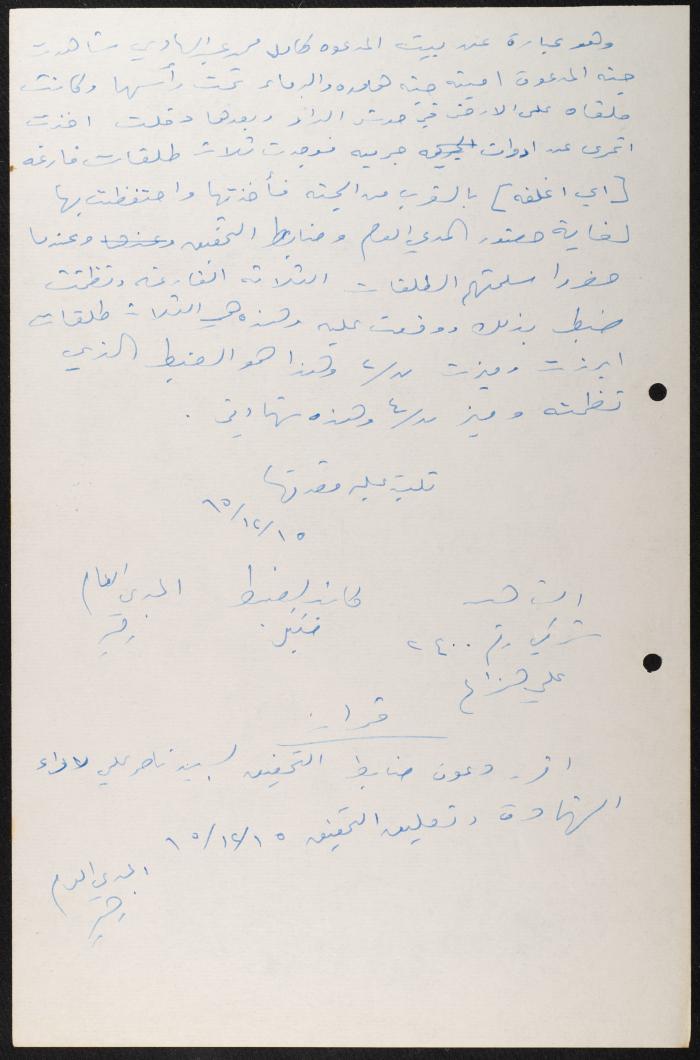 وهو عبارة عند بيت المدعوه كامل محمد عبد الهادي شاهدت
جثه المدعوة امينه جثه هامده والدماء تحت رأسها وكانت
ملقاه على الارض في حوش الدار وبعدها دقلت اخذت
اتحرى عن ادوات الجريمه جريمه فوجدت ثلاث طلقات فارغه
[اي اغلفه] بالقرب من الجثه فأخذتها واحتفظت بها
لغاية حضور المدعي العام وضابط التحقيق وعندها وعندما
حضروا سلمتهم الطلقات الثلاثه الفارغه ونظمت
ضبط بذلك ووقعت عليه وهذه هي الثلاث طلقات
ابرزت وميزت م/٢ وهذا هو الضبط الذي
نظمته وميز م/٤ وهذه شهادتي .
تليت عليه فصدقها
٦٥/١٢/١٥
الشاهد
كاتب الضبط
المدعي العام
شرطي رقم ٢٤٠٠
علي هزاع
قرار
اقرر دعوة ضابط التحقيق السيد ناصر علي لاداء
الشهادة وتعليق التحقيق ٦٥/١٢/١٥
المدعي العام